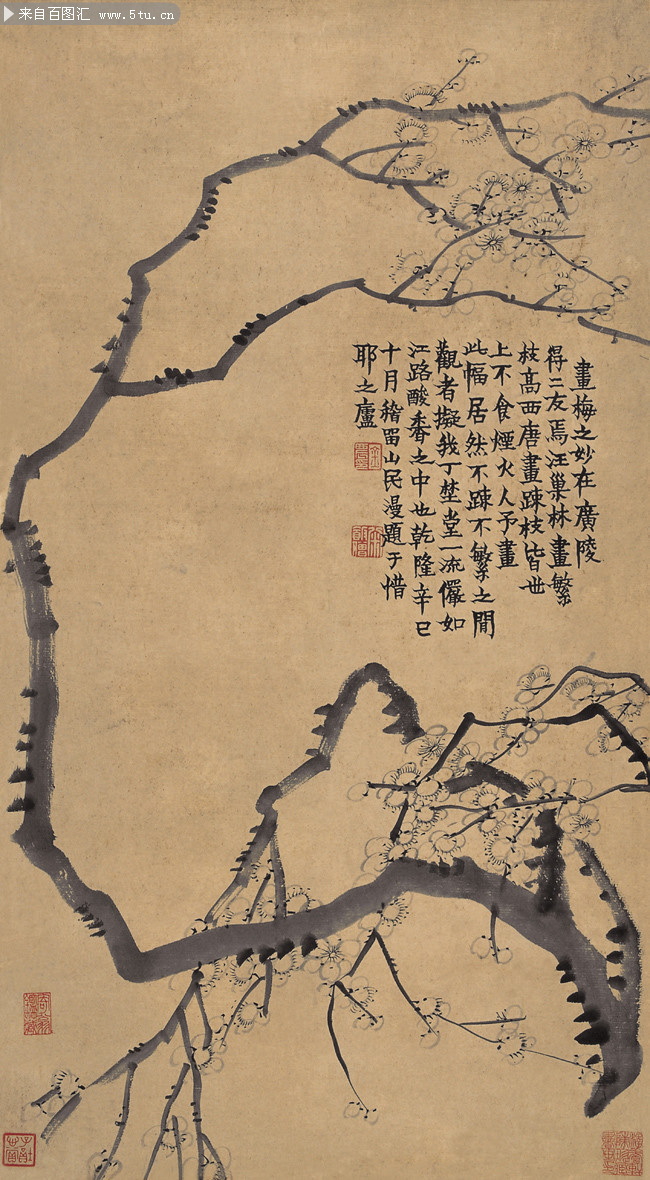 来自百图汇 www.5tu.cn
畫梅之妙在廣陵
得二友焉汪巢林畫繁
枝高西唐畫疎枝皆世
上不食煙火人予畫
此幅居然不疎不繁之間
觀者擬我丁埜堂一流儼如
江路酸香之中也乾隆辛巳
十月稽留山民漫題于惜
耶之廬